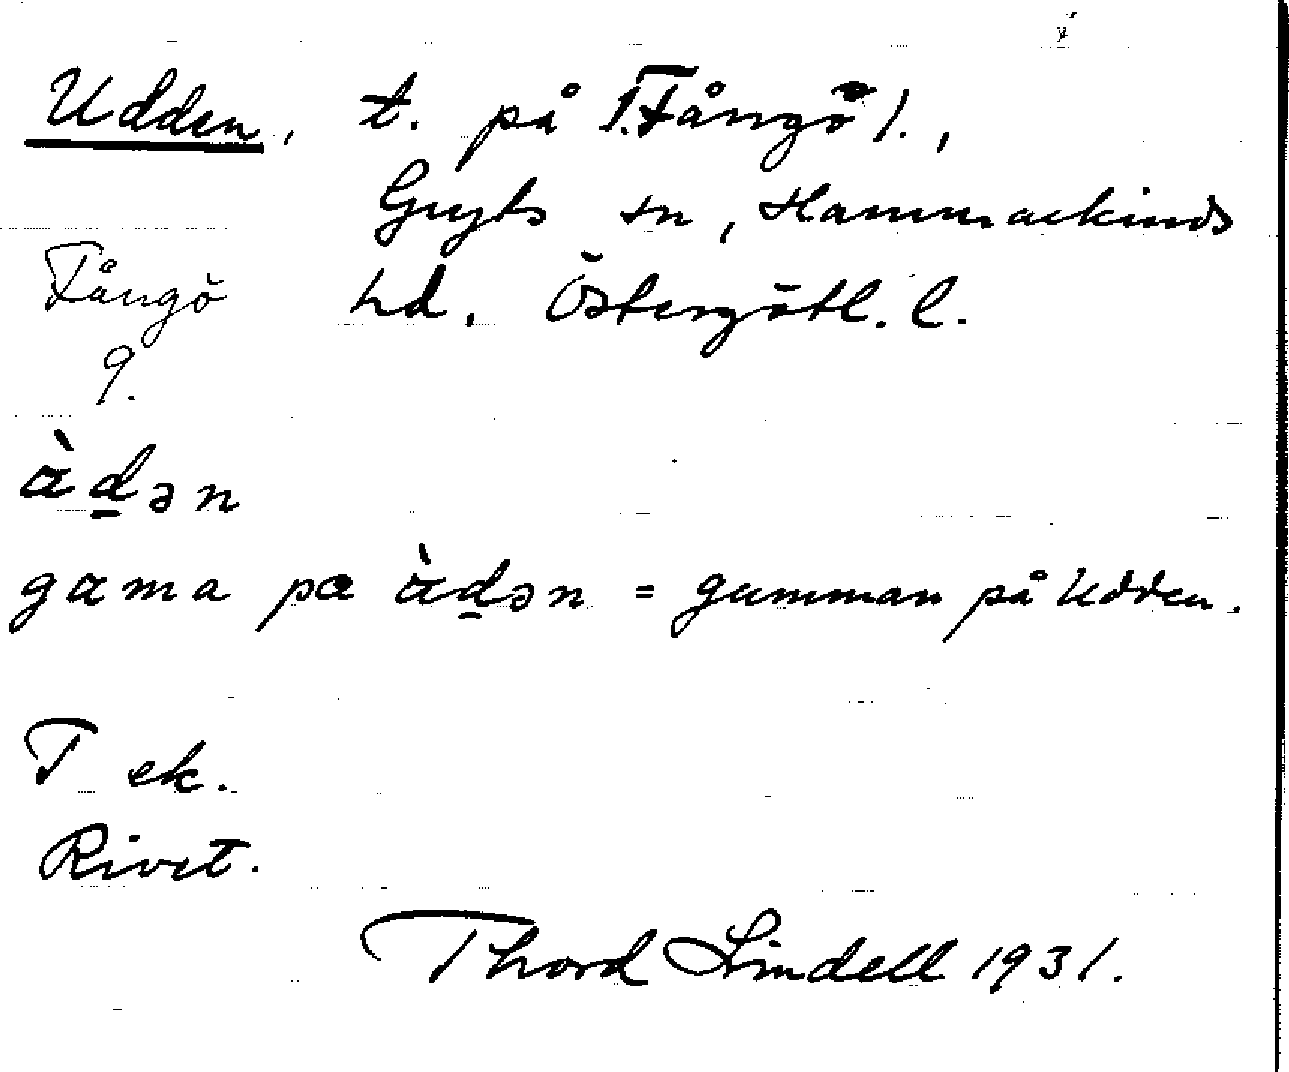 Udden, t. på Fångö 1.,
Gryts sn, Hammarkinds
Fångö hd. Östergötl. l.
9.
ɑ̀dən
gɑma pɑ ɑ̀dən = gumman på Udden.
T ek.
Rivet.
Thord Lindell 1931.